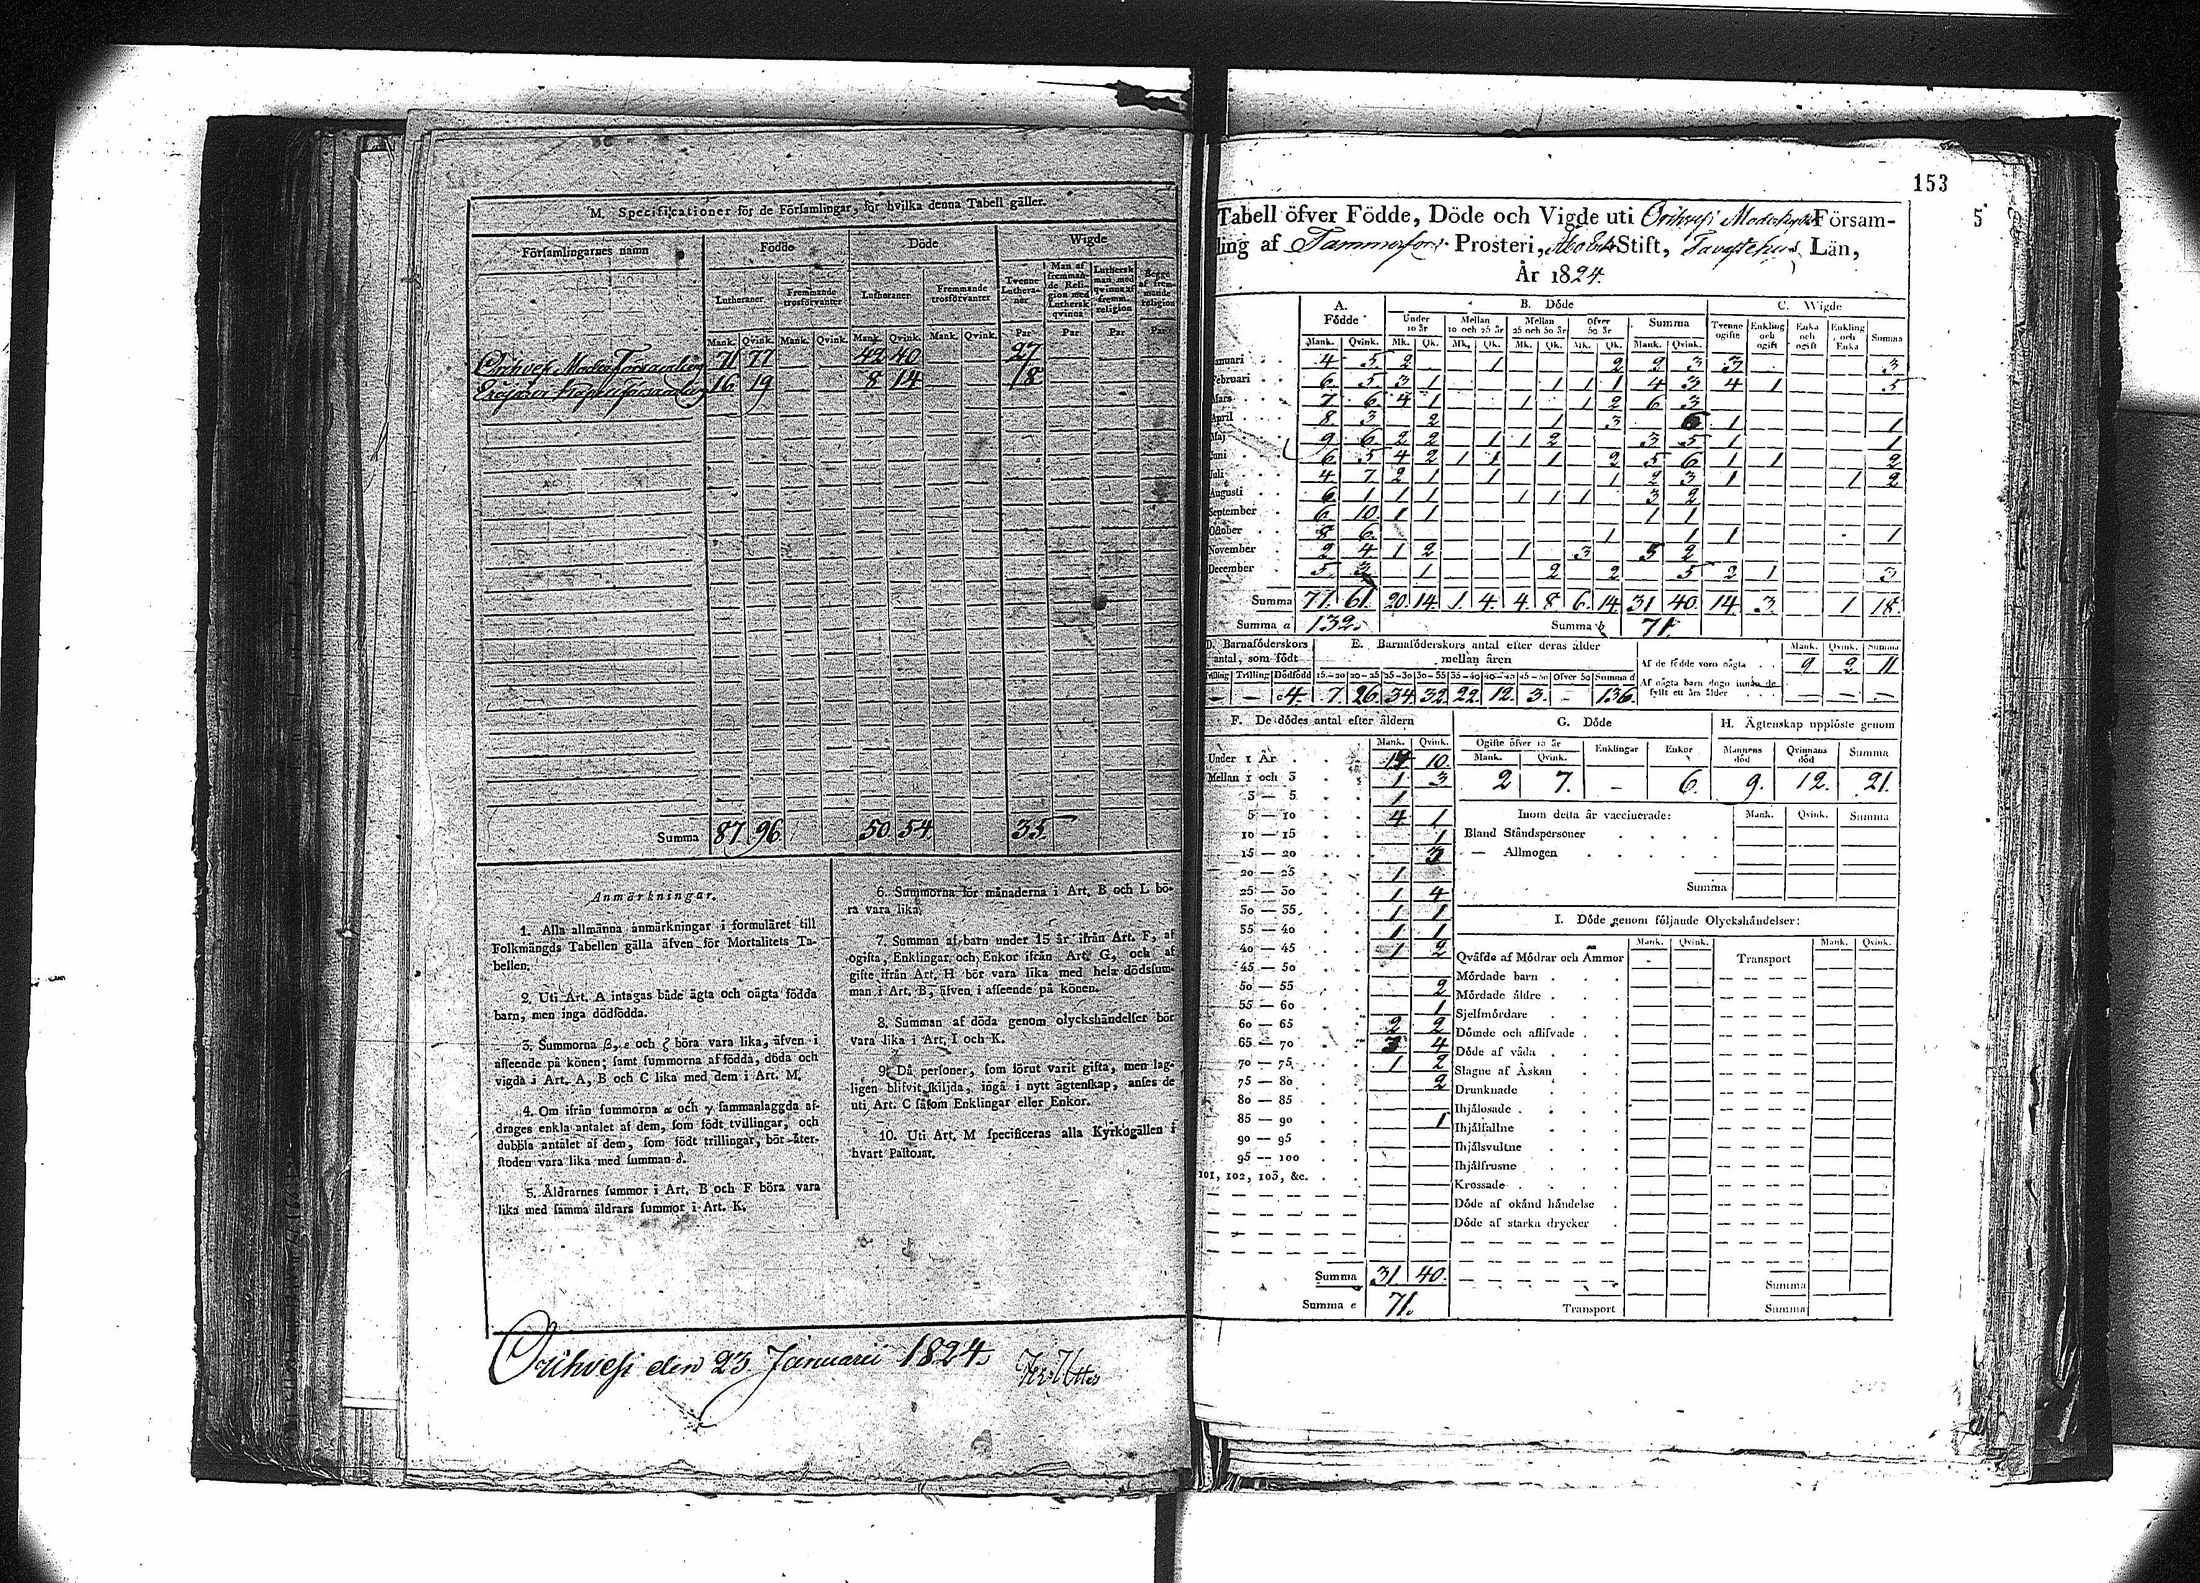 M. Specificationer för de Församlingar, för hvilka denna Tabell gäller.
Församlingarnes namn
Födde
Döde
Wigde
Lutheraner
Fremmande trosförvanter
Lutheraner
Fremmande trosförvanter
Tvenne Lutheraner
Man af fremmande Religion med Luthersk qvinna
Luthersk man med qvinna af fremm. religion
Begge af fremmande religion
Mank. Qvink. Mank. Qvink. Mank. Qvink. Mank. Qvink. Par Par Par Par
Orihvesi Moder Församling 71 77 42 40 27
Kapell församling 16 19 8 14 18
Summa 87 96 50 54 35
Anmärkningar.
1. Alla allmänna anmärkningar i formuläret till
Folkmängds Tabellen gälla äfven för Mortalitets Ta-
bellen.
2. Uti Art. A intagas både ägta och oägta födda
barn, men inga dödfödda.
3. Summorna β, ε och ζ böra vara lika, äfven i
afseende på könen; samt summorna af födda, döda och
vigda i Art. A, B och C lika med dem i Art. M.
4. Om ifrån summorna α och γ sammanlaggda af-
drages enkla antalet af dem, som födt tvillingar, och
dubbla antalet af dem, som födt trillingar, bör åter-
stoden vara lika med summan δ.
5. Åldrarnes summor i Art. B och F böra vara
lika med samma åldrars summor i Art. K.
6. Summorna för månaderna i Art. B och L bö-
ra vara lika.
7. Summan af barn under 15 år ifrån Art. F, af
ogifta, Enklingar och Enkor ifrån Art. G, och af
gifte ifrån Art. H bör vara lika med hela dödssum-
man i Art. B, äfven i afseende på könen.
8. Summan af döda genom olyckshändelser bör
vara lika i Art. I och K.
9. Då personer, som förut varit gifta, men lag-
ligen blifvit skiljda, ingå i nytt ägtenskap, anses de
uti Art. C såsom Enklingar eller Enkor.
10. Uti Art. M specificeras alla Kyrkogällen i
hvart Pastorat.
Orihvesi den 23 Januarii 1824.
153
5
Tabell öfver Födde, Döde och Vigde uti Orihvesi Moderkyrko Försam-
ling af Tammerfors Prosteri, Åbo Stift, Tavastehus Län,
År 1824.
A. Födde
B. Döde
C. Wigde
Under 10 år
Mellan 10 och 25 år
Mellan 25 och 50 år
Öfver 50 år
Summa
Tvenne ogifte
Enkling och ogift
Enka och ogift
Enkling och Enka
Summa
Mank. Qvink. Mk. Qk. Mk. Qk. Mk. Qk. Mk. Qk. Mank. Qvink.
Januari 4 5 2 1 2 2 3 3 3
Februari 6 5 3 1 1 1 1 4 3 4 1 5
Mars 7 6 4 1 1 1 2 6 3
April 8 3 2 1 3 6 1 1
Maj 9 6 2 2 1 1 2 3 5 1 1
Juni 6 5 4 2 1 1 1 2 5 6 1 1 2
Juli 4 7 2 1 1 1 2 3 1 1 2
Augusti 6 1 1 1 1 1 1 3 2
September 6 10 1 1 1 1
October 8 6 1 1 1 1
November 2 4 1 2 1 3 5 2
December 5 3 1 2 2 5 2 1 3
Summa 71. 61. 20. 14. 1. 4. 4. 8. 6. 14. 31. 40. 14. 3. 1 18.
Summa a 132.
Summa b 71.
D. Barnaföderskors antal, som födt
E. Barnaföderskors antal efter deras ålder mellan åren
Mank. Qvink. Summa
Af de födde voro oägta 9 2 11
Af oägta barn dogo innan de fyllt ett års ålder — — —
Tvilling Trilling Dödfödd 15—20 20—25 25—30 30—35 35—40 40—45 45—50 Öfver 50 Summa d
— — c 4. 7. 26. 34. 32. 22. 12. 3. — 136.
F. De dödes antal efter åldern
Mank. Qvink.
Under 1 År 14 10.
Mellan 1 och 3 1 3
3 — 5 1
5 — 10 4 1
10 — 15 1
15 — 20 3
20 — 25 1
25 — 30 1 4
30 — 35 1 1
35 — 40 1 1
40 — 45 1 2
45 — 50
50 — 55 2
55 — 60 1
60 — 65 2 2
65 — 70 3 4
70 — 75 1 2
75 — 80 2
80 — 85
85 — 90 1
90 — 95
95 — 100
101, 102, 103, &c.
Summa 31. 40.
Summa e 71.
G. Döde
Ogifte öfver 15 år
Mank. Qvink.
Enklingar
Enkor
2 7. — 6.
H. Ägtenskap upplöste genom
Mannens död
Qvinnans död
Summa
9. 12. 21.
Inom detta år vaccinerade:
Mank. Qvink. Summa
Bland Ståndspersoner
— Allmogen
Summa
I. Döde genom följande Olyckshändelser:
Mank. Qvink. Mank. Qvink.
Qväfde af Mödrar och Ammor
Transport
Mördade barn
Mördade äldre
Sjelfmördare
Dömde och aflifvade
Döde af våda
Slagne af Åskan
Drunknade
Ihjälosade
Ihjälfallne
Ihjälsvultne
Ihjälfrusne
Krossade
Döde af okänd händelse
Döde af starka drycker
Summa
Transport
Summa